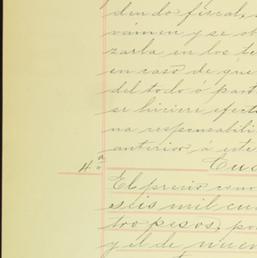 dendo fiscal,
vámen y se ob
zarla en los té
en caso de que
del todo ó part
se hiciere efect
na responsabili
anterior á este
4ª Cua
El precio conv
seis mil cua
tro pesos, po
y el de nueve